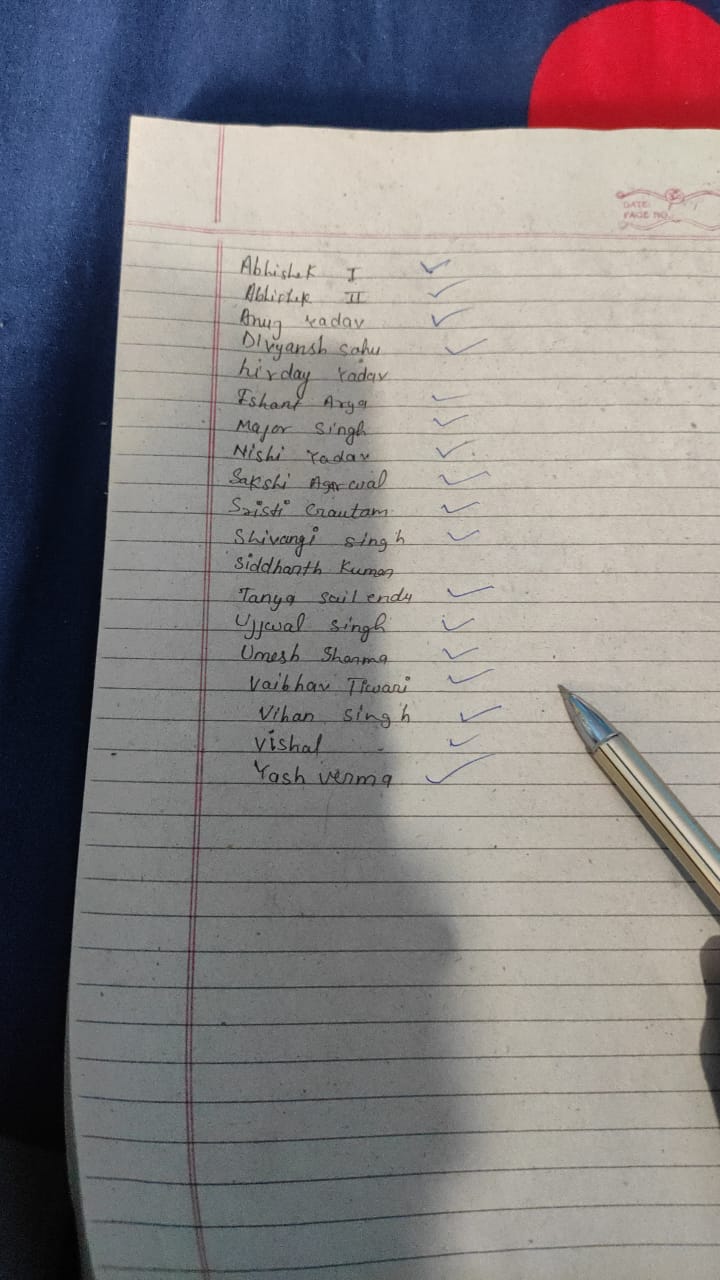 DATE:
PAGE NO.:
Abhishek I ✓
Abhishek II ✓
Anug Yadav ✓
Divyansh Sahu ✓
hirday Yadav
Eshant Arya ✓
Major Singh ✓
Nishi Yadav ✓
Sakshi Agarwal ✓
Sristi Gautam ✓
Shivangi singh ✓
Siddhanth Kumar
Tanya sailendy ✓
Ujjwal singh ✓
Umesh Sharma ✓
Vaibhav Tiwari ✓
Vihan singh ✓
Vishal - ✓
Yash verma ✓